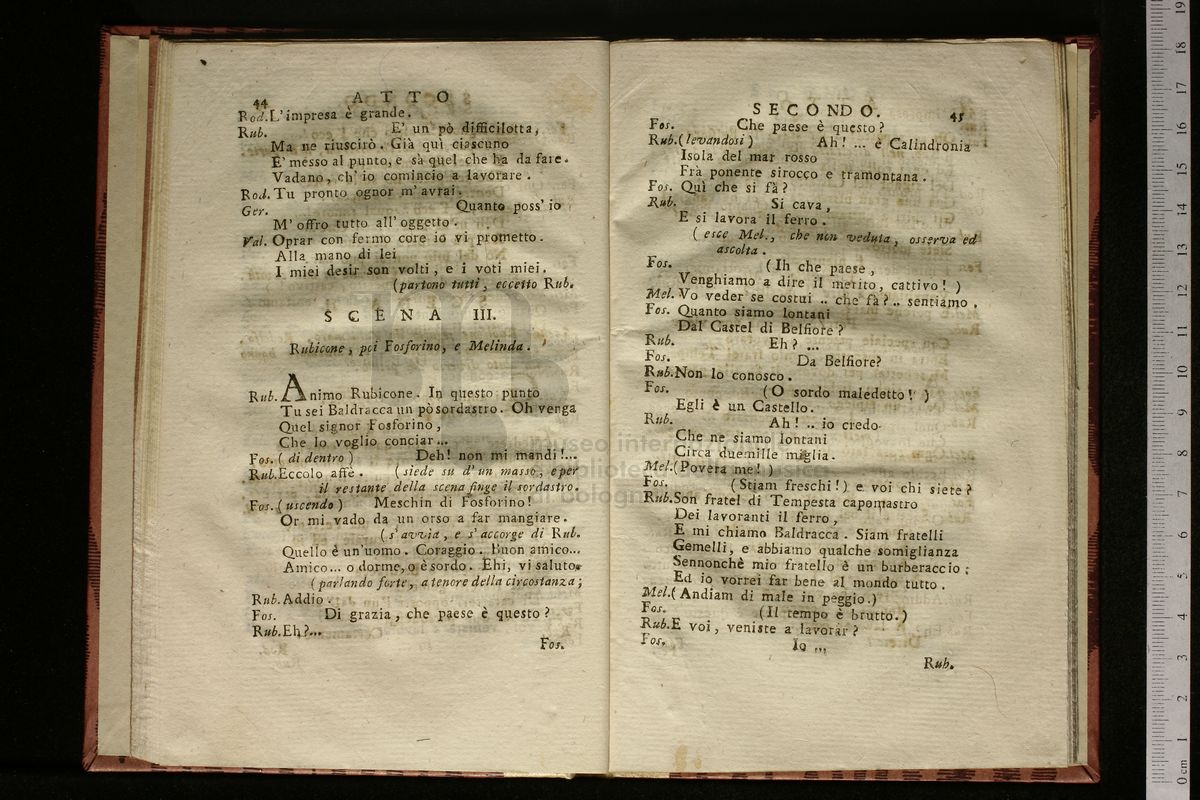 44
ATTO
Rod. L'impresa è grande.
Rub. E' un pò difficilotta,
Ma ne riuscirò. Già quì ciascuno
E' messo al punto, e sà quel che ha da fare.
Vadano, ch'io comincio a lavorare.
Rod. Tu pronto ognor m'avrai.
Ger. Quanto poss'io
M'offro tutto all'oggetto.
Val. Oprar con fermo core io vi prometto.
Alla mano di lei
I miei desir son volti, e i voti miei.
(partono tutti, eccetto Rub.
SCENA III.
Rubicone, poi Fosforino, e Melinda.
Rub. Animo Rubicone. In questo punto
Tu sei Baldracca un pò sordastro. Oh venga
Quel signor Fosforino,
Che lo voglio conciar...
Fos. (di dentro) Deh! non mi mandi!...
Rub. Eccolo affè. (siede su d'un masso, e per
il restante della scena finge il sordastro.
Fos. (uscendo) Meschin di Fosforino!
Or mi vado da un orso a far mangiare.
(s'avvia, e s'accorge di Rub.
Quello è un'uomo. Coraggio. Buon amico...
Amico... o dorme, o è sordo. Ehi, vi saluto.
(parlando forte, a tenore della circostanza;
Rub. Addio.
Fos. Di grazia, che paese è questo?
Rub. Eh?...
Fos.
SECONDO.
45
Fos. Che paese è questo?
Rub. (levandosi) Ah! ... è Calindronia
Isola del mar rosso
Frà ponente sirocco e tramontana.
Fos. Quì che si fà?
Rub. Si cava,
E si lavora il ferro.
(esce Mel., che non veduta, osserva ed
ascolta.
Fos. (Ih che paese,
Venghiamo a dire il merito, cattivo!)
Mel. Vo veder se costui .. che fà?.. sentiamo.
Fos. Quanto siamo lontani
Dal Castel di Belfiore?
Rub. Eh? ...
Fos. Da Belfiore?
Rub. Non lo conosco.
Fos. (O sordo maledetto!)
Egli è un Castello.
Rub. Ah! .. io credo
Che ne siamo lontani
Circa duemille miglia.
Mel. (Povera me!)
Fos. (Stiam freschi!) e voi chi siete?
Rub. Son fratel di Tempesta capomastro
Dei lavoranti il ferro,
E mi chiamo Baldracca. Siam fratelli
Gemelli, e abbiamo qualche somiglianza
Sennonchè mio fratello è un burberaccio;
Ed io vorrei far bene al mondo tutto.
Mel. (Andiam di male in peggio.)
Fos. (Il tempo è brutto.)
Rub. E voi, veniste a lavorar?
Fos. Io ...
Rub.